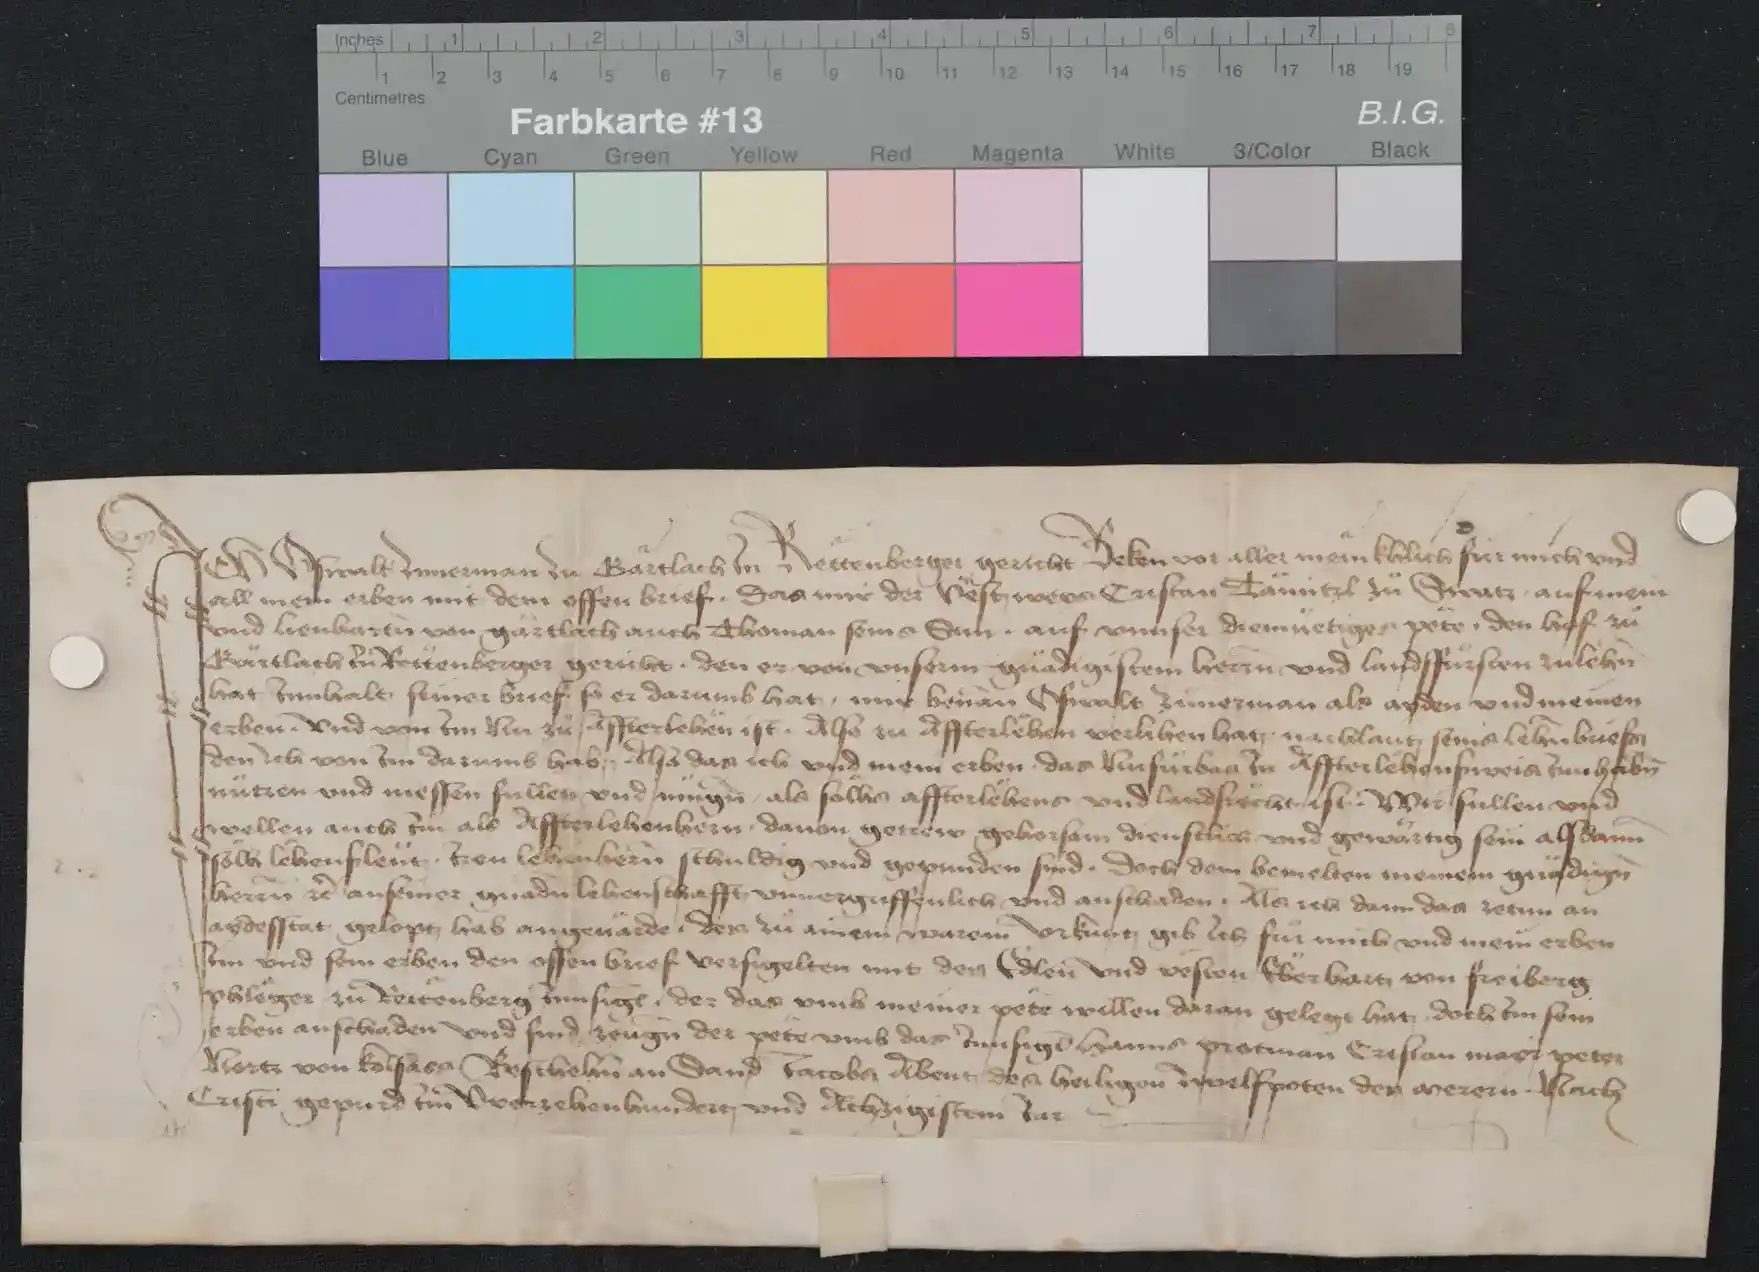 Inches 1 2 3 4 5 6 7 8
1 2 3 4 5 6 7 8 9 10 11 12 13 14 15 16 17 18 19
Centimetres
Farbkarte #13
B.I.G.
Blue Cyan Green Yellow Red Magenta White 3/Color Black
Ich Oswalt Zimerman zu Gärtlach in Rettenberger gericht Beken vor aller menikhlich für mich und
all mein erben mit dem offen brief. Das mir der Vest weys Cristan Tänntzl zu Swatz auf mein
und lienhartn von gärtlach auch Thoman seins Sun. auf unnser diemuetigen pete. den hof zu
Gärtlach in Rettenberger gericht. den er von unserm gnädigistem herrn und landsfürsten zu lehn
hat innhalt seiner brief so er darumb hat. mir benan Oswalt Zimerman als ayden und meinen
erben. Und von im Nu zu Affterlehen ist. Also zu Affterlehen verlihen hat nachlaut seins lehnbriefs
den ich von im darumb hab. Also das ich und mein erben das Nufürbas in Affterlehensweis innhabn
nützen und niessen sullen und mügn als sölhs affterlehens und landsrecht ist. Wir sullen und
wellen auch im als Affterlehenhern davon getrew gehorsam dienstlich und gewärtig sein alsdann
sölh lehensleut iren lehenhern schuldig und gepunden sind. Doch dem bemelten meinem gnädign
herrn etc an seiner gnadn lehenschafft unvergriffenlich und anschaden. Als ich dann das zetun an
aydesstat gelopt hab angeuärde. des zu ainem warem urkunt gib Ich für mich und mein erben
im und sein erben den offen brief versigelten mit des Edlen und vesten Eberhart von freiberg
phleger zu Rettenberg innsigl. der das umb meiner pete willen daran gelegt hat doch im sein
erben anschaden und sind zeugn der pete umb das innsigl hanns protman Cristan mair peter
Nortz von kolsass Beschehn an Sand Jacobs Abent des heiligen zwelfpoten des merern. Nach
Cristi gepurd im Vierzehenhundert und Achzigistem Jar